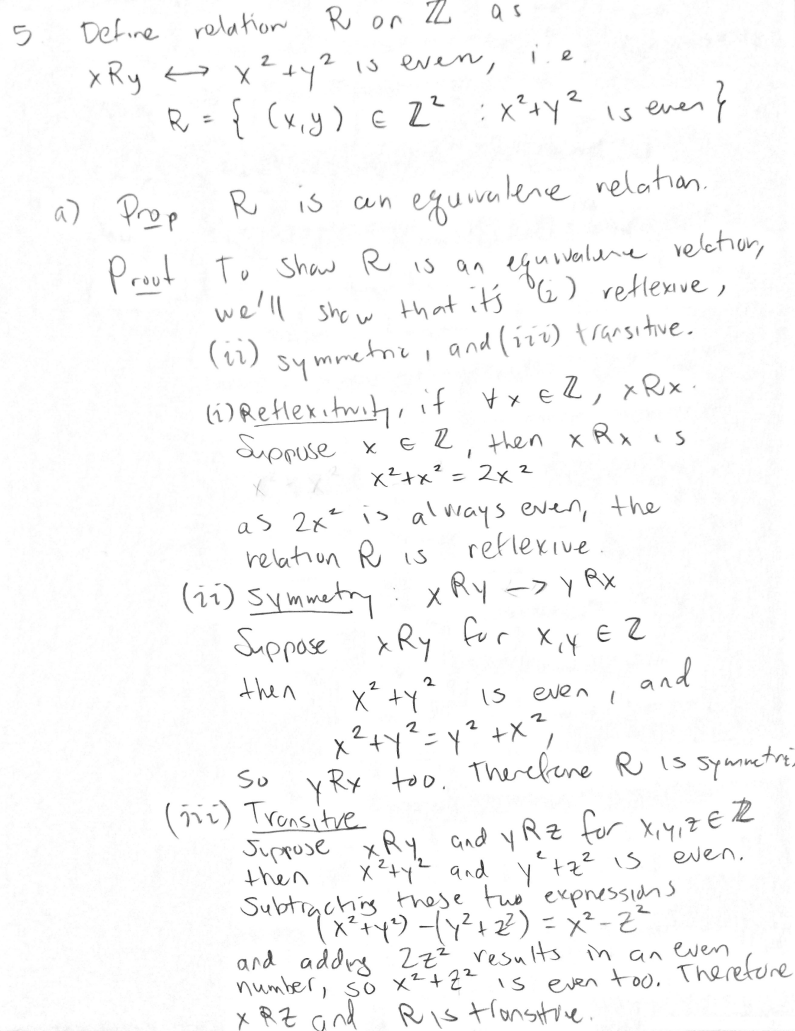 5. Define relation R on ℤ as
xRy ↔ x²+y² is even, i.e.
R = { (x,y) ∈ ℤ² : x²+y² is even}
a) Prop R is an equivalence relation.
Proof To show R is an equivalence relation,
we'll show that it's (i) reflexive,
(ii) symmetric, and (iii) transitive.
(i) Reflexitivity, if ∀x ∈ ℤ, xRx.
Suppose x ∈ ℤ, then xRx is
x²+x² = 2x²
as 2x² is always even, the
relation R is reflexive.
(ii) Symmetry : xRy → yRx
Suppose xRy for x,y ∈ ℤ
then x²+y² is even, and
x²+y² = y²+x²,
So yRx too. Therefore R is symmetric.
(iii) Transitve
Suppose xRy and yRz for x,y,z ∈ ℤ
then x²+y² and y²+z² is even.
Subtracting these two expressions
(x²+y²) - (y²+z²) = x²-z²
and adding 2z² results in an even
number, so x²+z² is even too. Therefore
xRz and R is transitive.